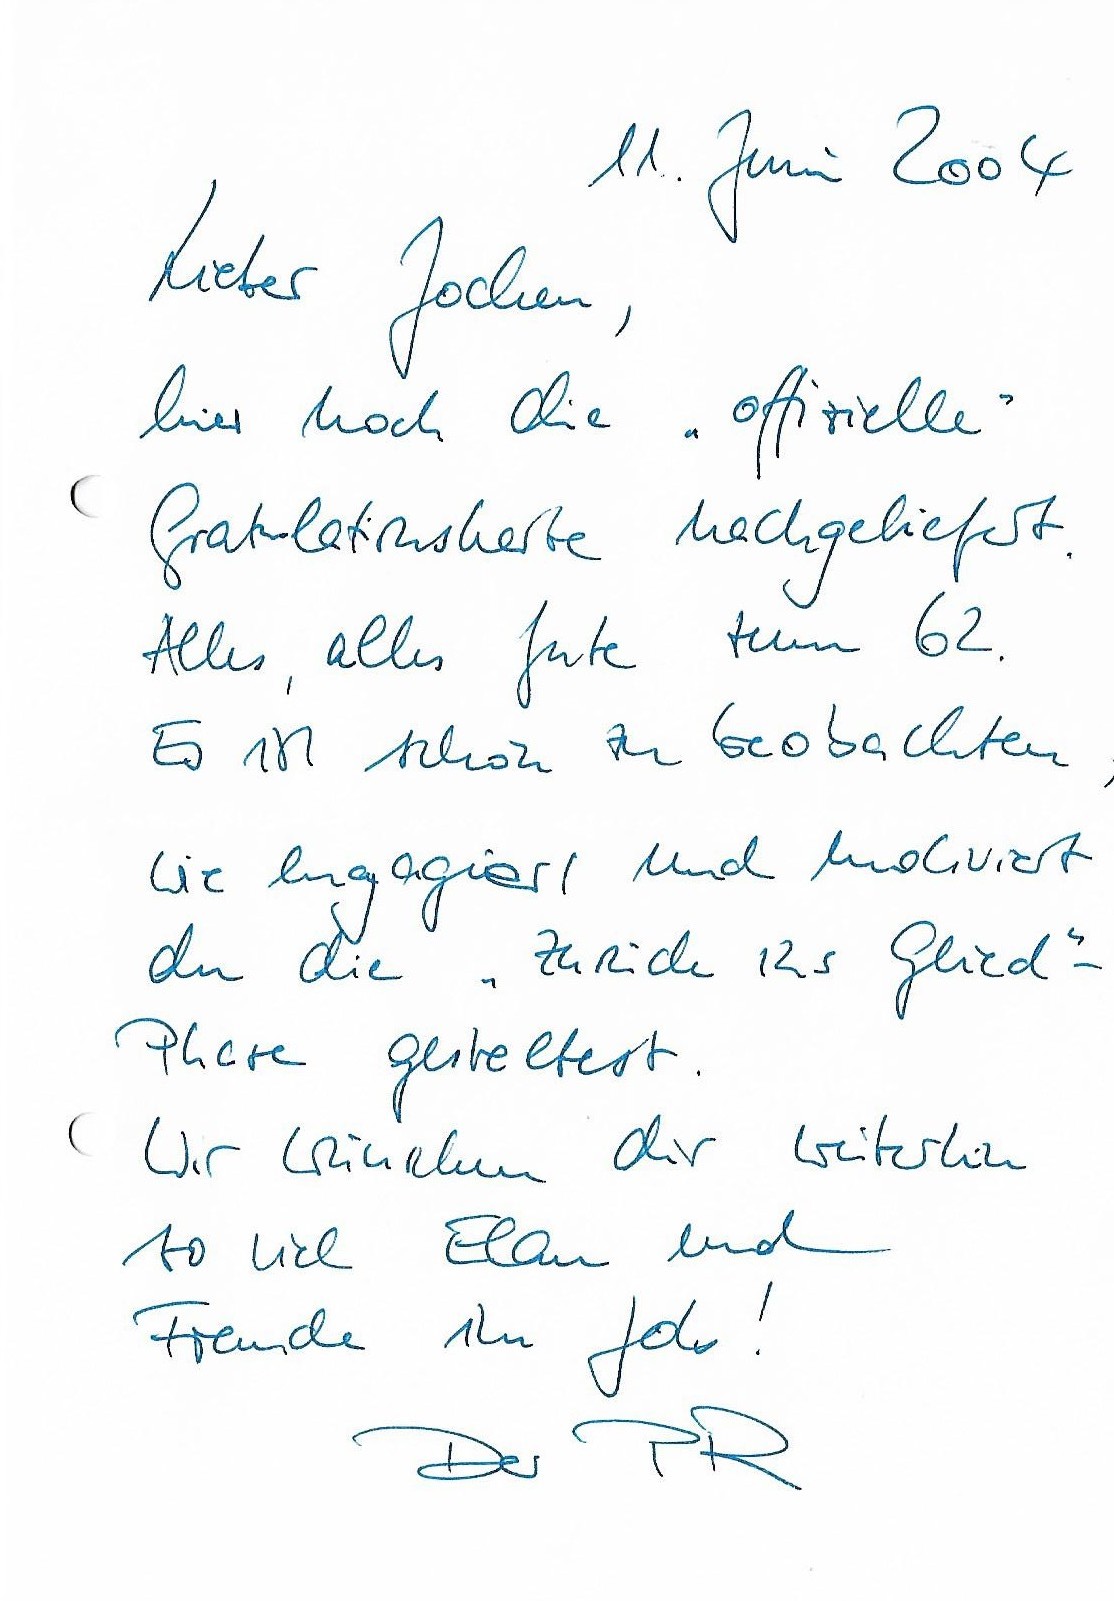 11. Juni 2004
Lieber Jochen,
hier noch die „offizielle"
Gratulationskarte nachgeliefert.
Alles, alles Gute zum 62.
Es ist schön zu beobachten,
wie engagiert und motiviert
du die „Zurück ins Glied"-
Phase gestaltest.
Wir wünschen dir weiterhin
so viel Elan und
Freude im Job!
Der PR